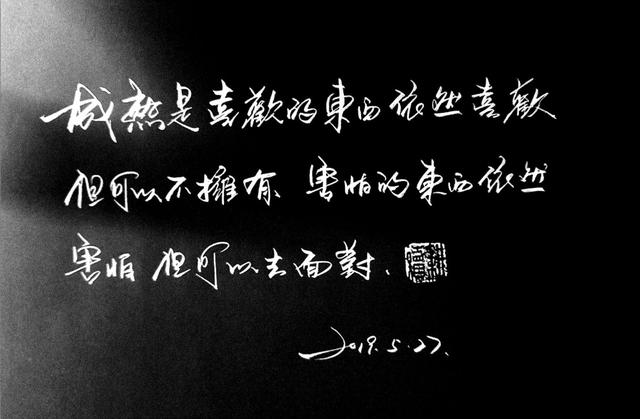 成熟是喜歡的東西依然喜歡
但可以不擁有、害怕的東西依然
害怕 但可以去面對、
2019.5.27.